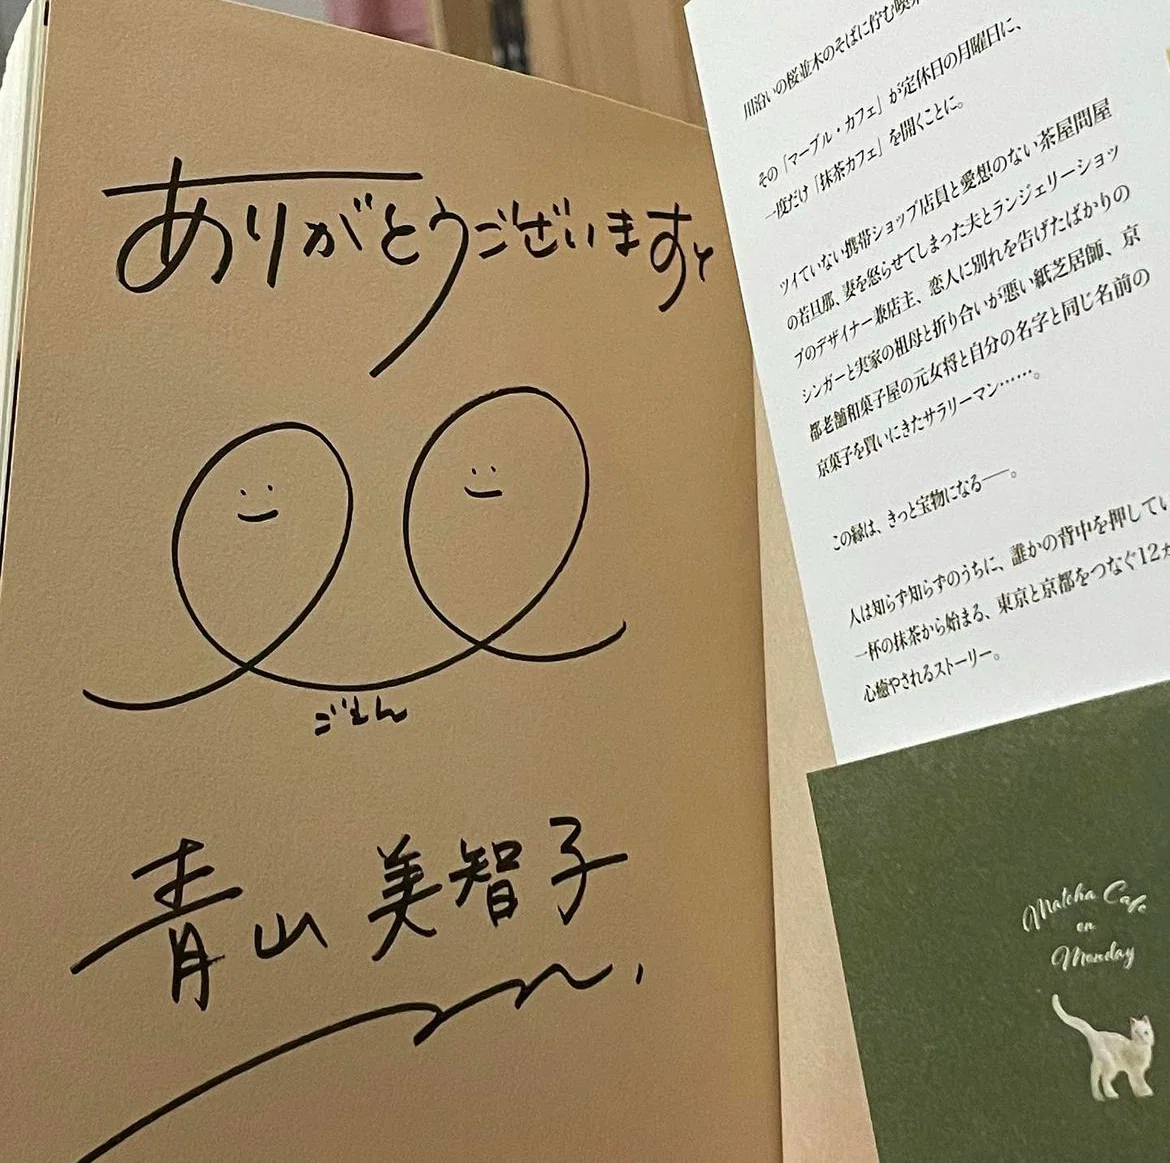 ありがとうございます
ごえん
青山 美智子
川沿いの桜並木のそばに佇む喫
その「マーブル・カフェ」が定休日の月曜日に、
一度だけ「抹茶カフェ」を開くことに。
ツイていない携帯ショップ店員と愛想のない茶屋問屋
の若旦那、妻を怒らせてしまった夫とランジェリーショッ
プのデザイナー兼店主、恋人に別れを告げたばかりの
シンガーと実家の祖母と折り合いが悪い紙芝居師、京
都老舗和菓子屋の元女将と自分の名字と同じ名前の
京菓子を買いにきたサラリーマン……。
この縁は、きっと宝物になる――。
人は知らず知らずのうちに、誰かの背中を押してい
一杯の抹茶から始まる、東京と京都をつなぐ12カ
心癒やされるストーリー。
Matcha Cafe
on
Monday